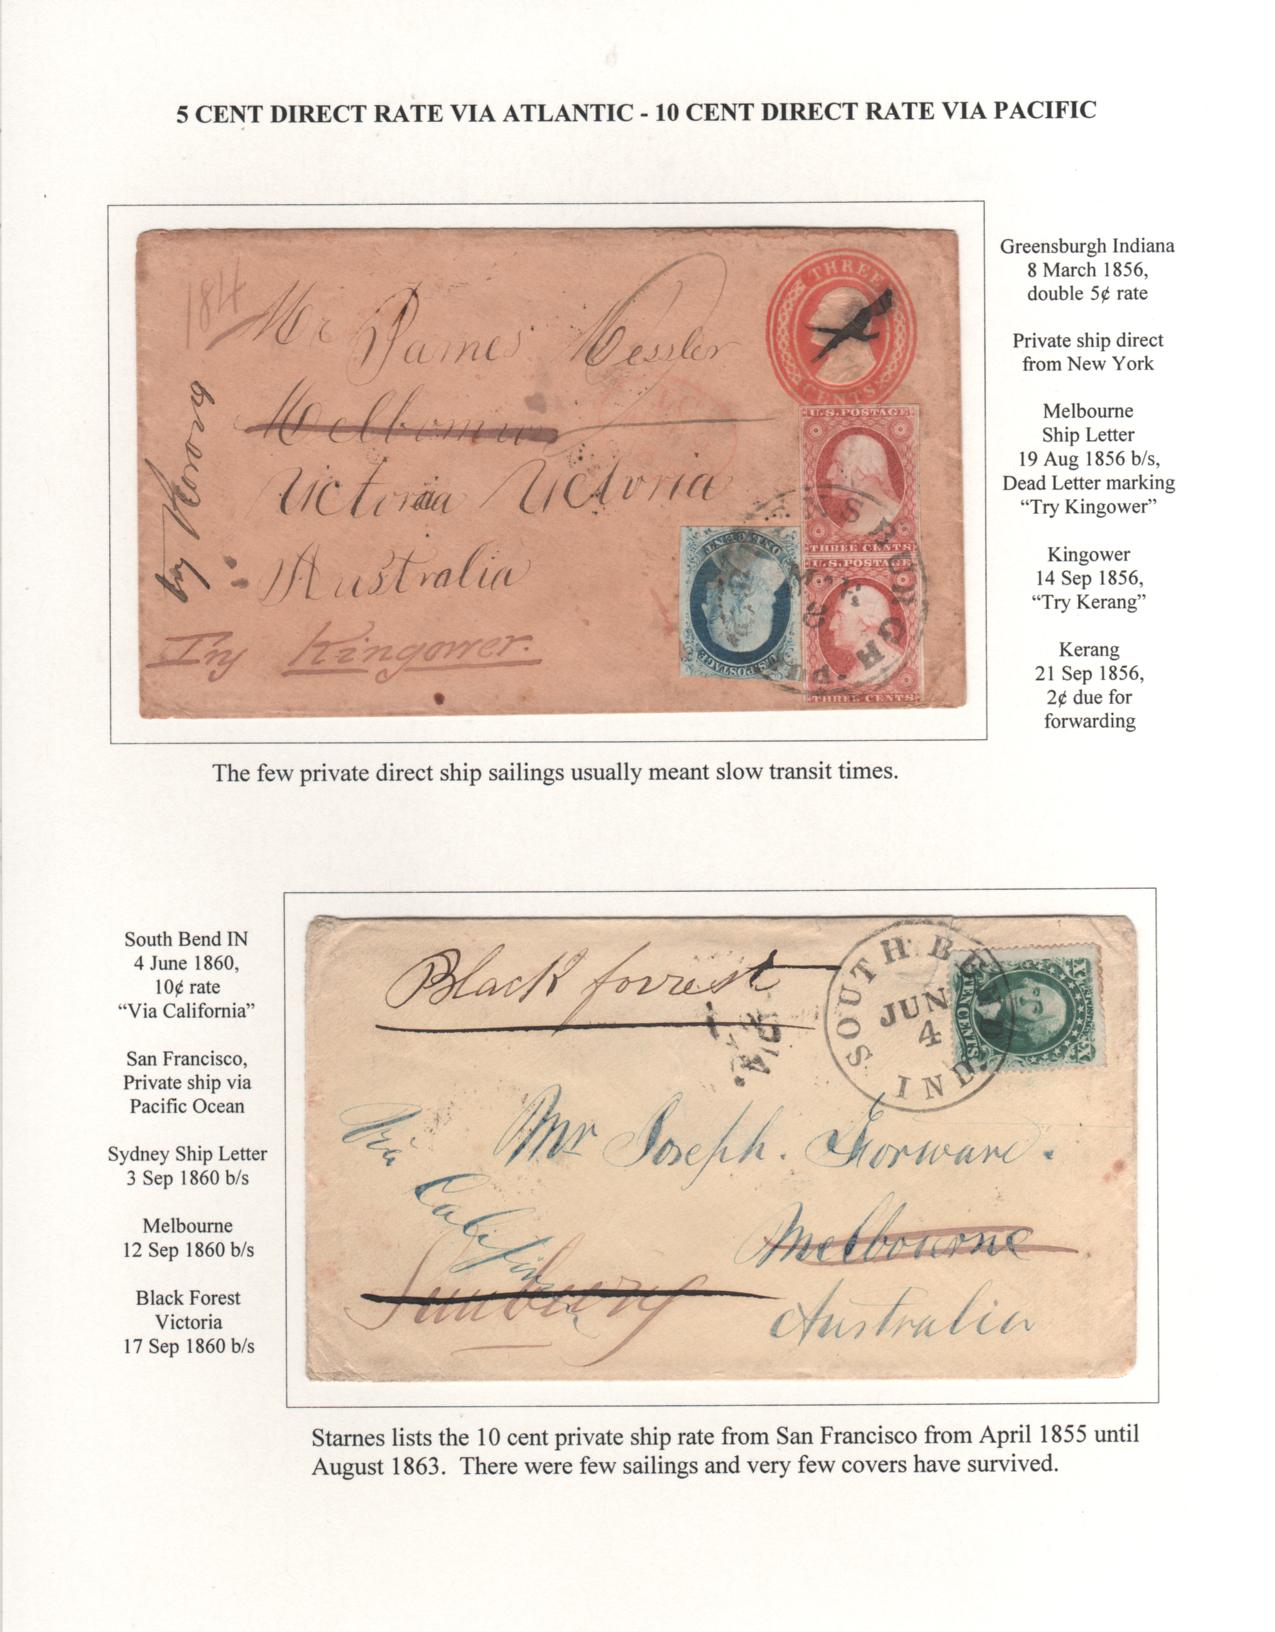 5 CENT DIRECT RATE VIA ATLANTIC - 10 CENT DIRECT RATE VIA PACIFIC
184
Mr James Messler
Melbourne
Victoria Victoria
Australia
try Korong
Try Kingower.
THREE
CENTS
U.S. POSTAGE
THREE CENTS
U.S. POSTAGE
THREE CENTS
U.S. POSTAGE
ONE CENT
ENSBURGH
MAR
8
Greensburgh Indiana
8 March 1856,
double 5¢ rate
Private ship direct
from New York
Melbourne
Ship Letter
19 Aug 1856 b/s,
Dead Letter marking
“Try Kingower”
Kingower
14 Sep 1856,
“Try Kerang”
Kerang
21 Sep 1856,
2¢ due for
forwarding
The few private direct ship sailings usually meant slow transit times.
South Bend IN
4 June 1860,
10¢ rate
“Via California”
San Francisco,
Private ship via
Pacific Ocean
Sydney Ship Letter
3 Sep 1860 b/s
Melbourne
12 Sep 1860 b/s
Black Forest
Victoria
17 Sep 1860 b/s
Black forrest
SOUTH BEND
JUN
4
IND.
TEN CENTS
Via
California
Mr Joseph. Forward.
Melbourne
Sunbury
Australia
Starnes lists the 10 cent private ship rate from San Francisco from April 1855 until
August 1863. There were few sailings and very few covers have survived.